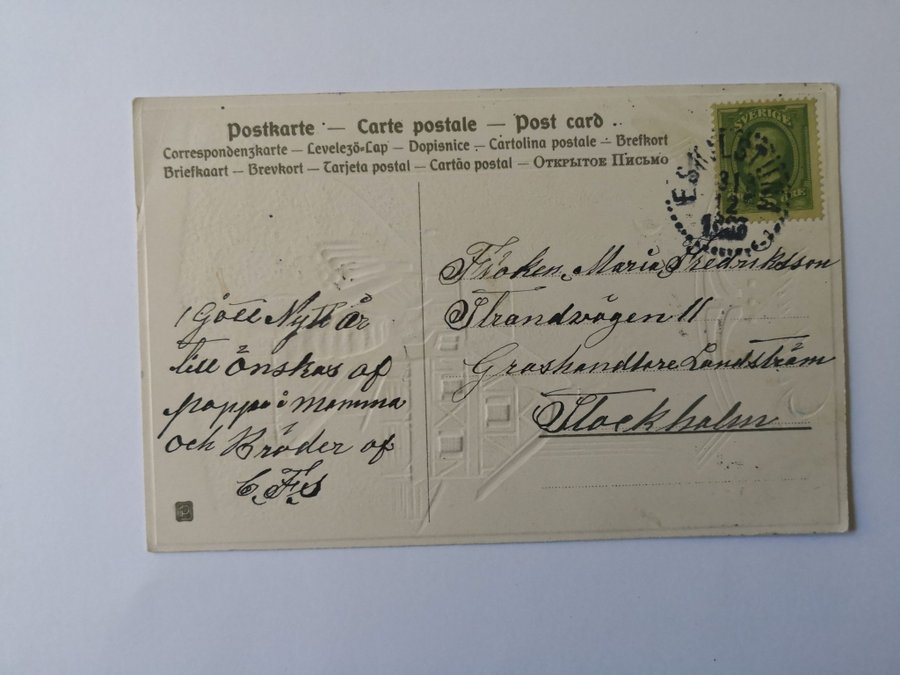 Postkarte — Carte postale — Post card
Correspondenzkarte — Levelező-Lap — Dopisnice — Cartolina postale — Brefkort
Briefkaart — Brevkort — Tarjeta postal — Cartão postal — Открытое Письмо
SVERIGE
31
12
Fröken Maria Fredriksson
Strandvägen 11
Groshandlore Landström
Stockholm
Gott Nytt År
till Önskas af
pappa å Mamma
och Bröder af
C. F.s